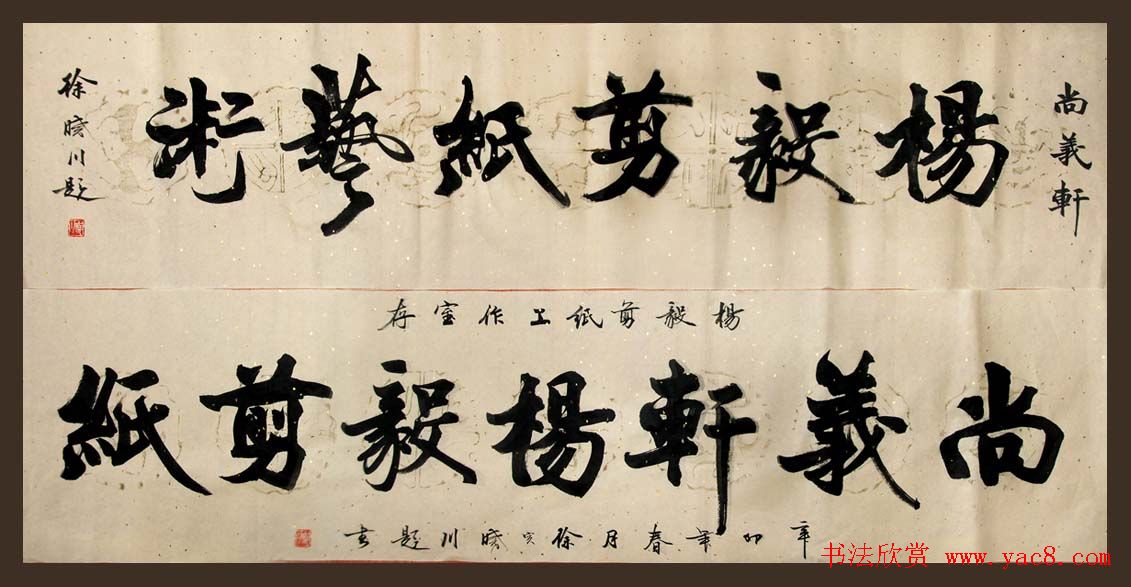 尚義軒
楊毅剪紙藝術
徐曉川題
楊毅剪紙工作室存
尚義軒楊毅剪紙
辛卯年春月徐曉川題書
书法欣赏 www.yac8.com